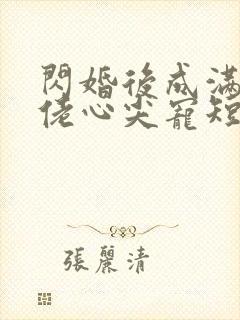 閃婚後成滿
佬心尖寵短
張麗清